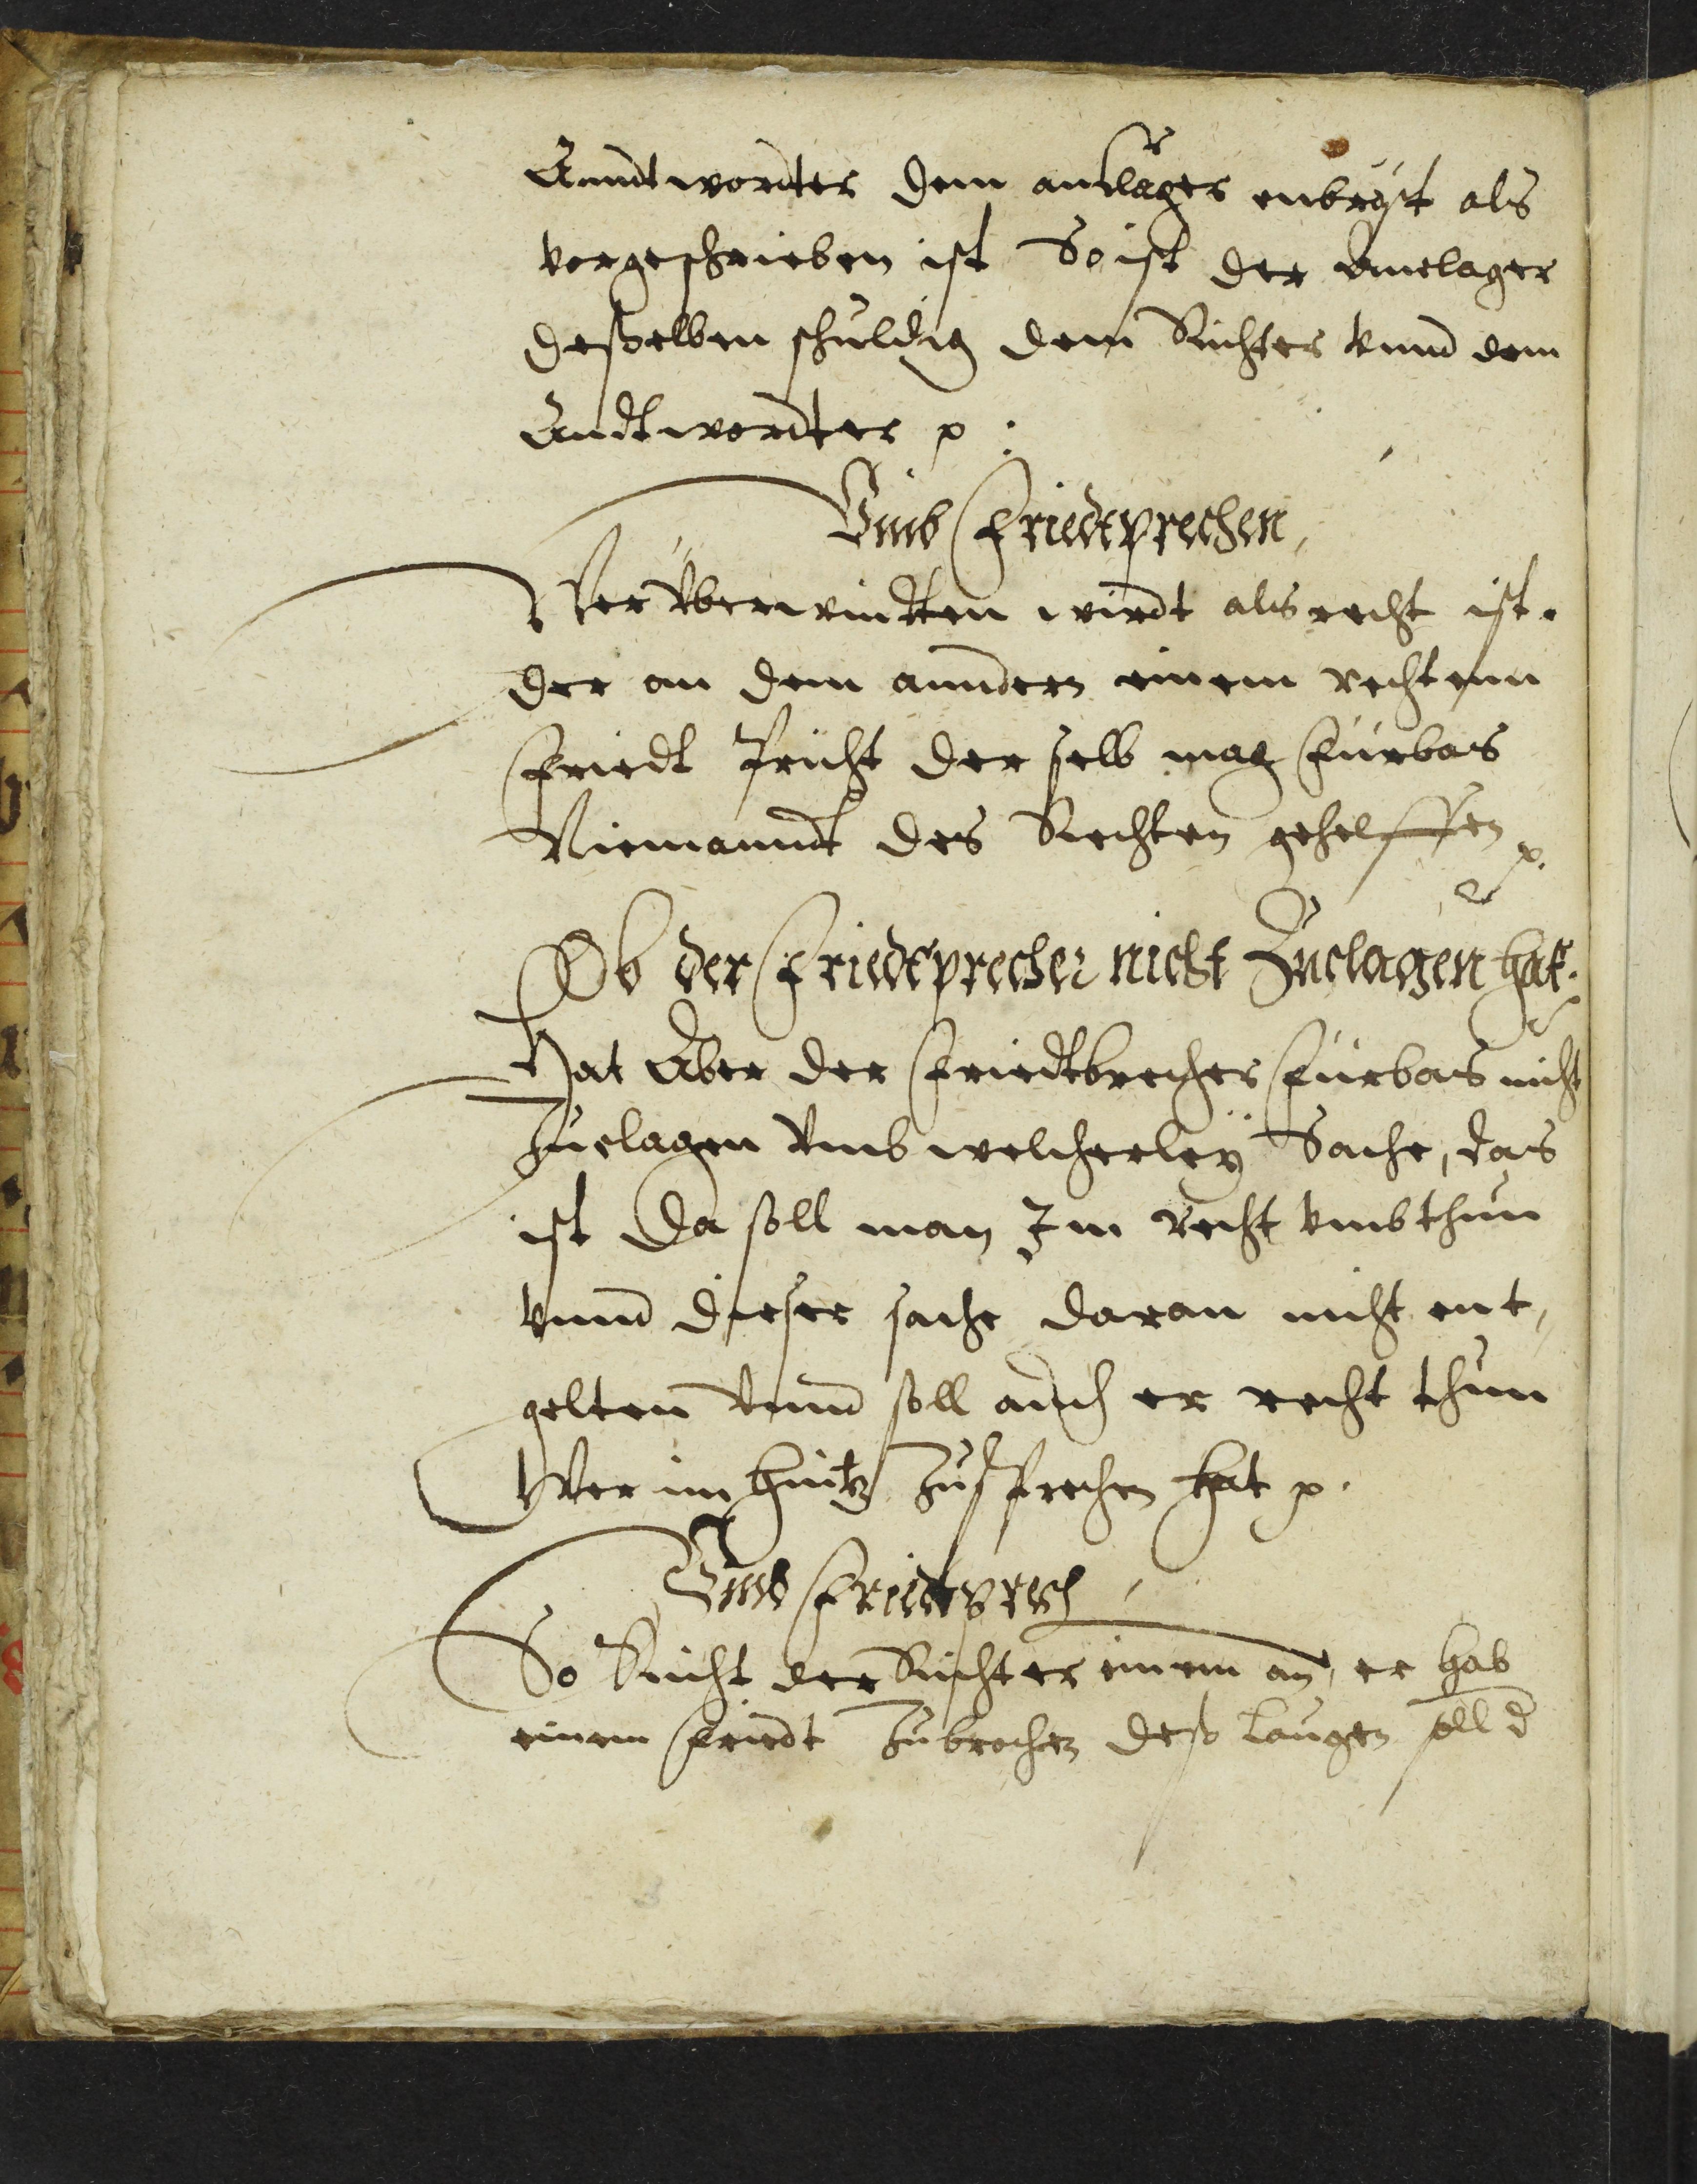 Anndtwordter dem anclager enbrist als
vorgeschrieben ist So ist der Annclager
desselben schuldig dem Richter vnnd dem
Andtwordter p:
Vmb Friedtprechen,
Wer Vberwindten wirdt als recht ist.
der an dem anndern einem rechtenn
Friedt Pricht derselb mag Fürbas
Niemanndt des Rechten gehelffen p.
Ob der Friedtprecher nicht Zuclagen hat.
Hat Aber der Friedtbrecher Fürbas nicht
Zuclagen Vmb welcherleÿ Sache, das
ist Da soll man Im Recht vmbthun
vnnd dieser sache daran nicht ent,
gelten Vnnd soll auch er recht thun
Wer im hintz Zusprechen hat p.
Vmb Friedtprech
So Richt der Richter einem an, er hab
einem Friedt Zubrochen des Laugen soll d